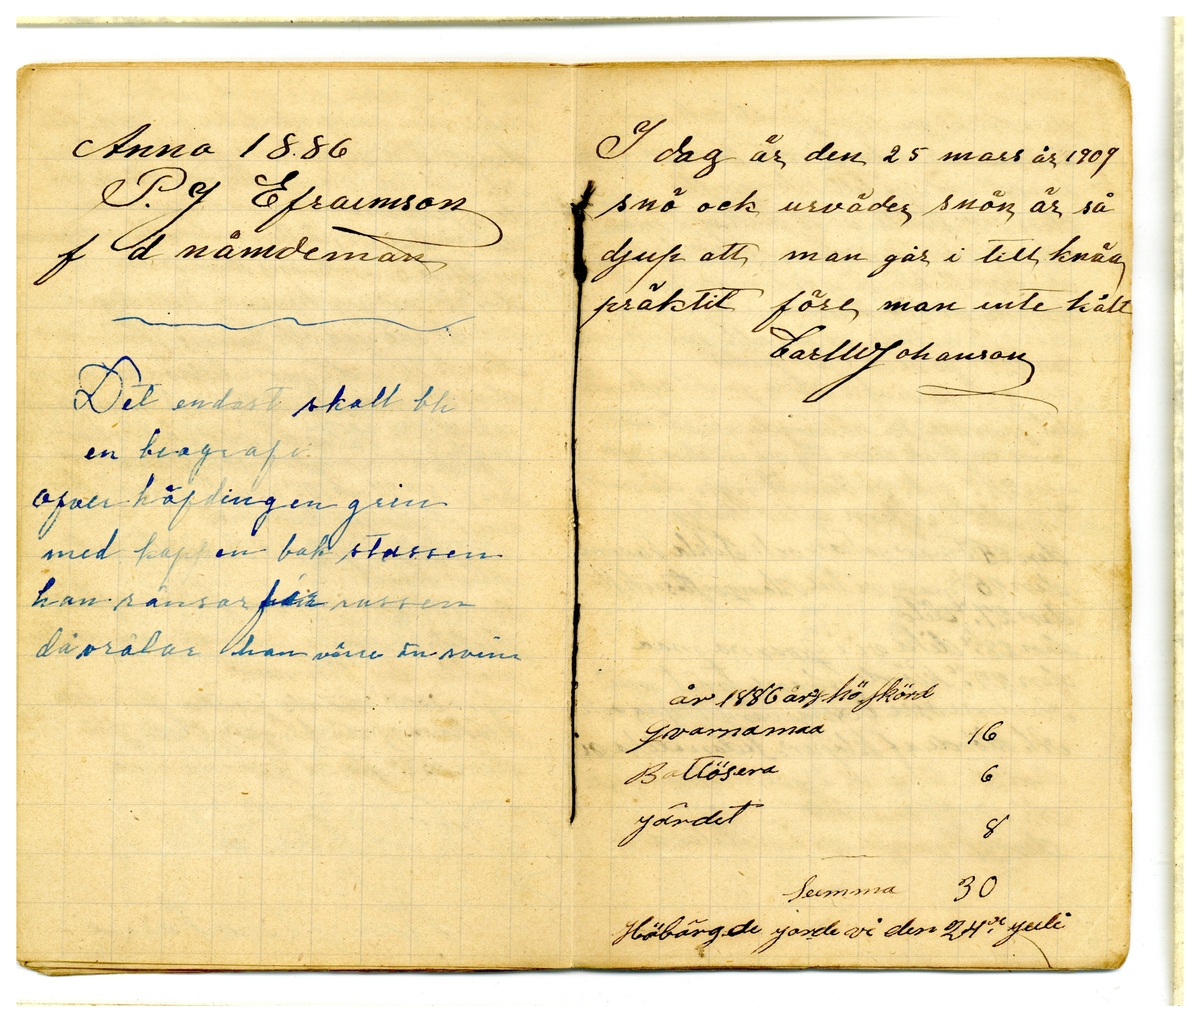 Anno 1886
P. J Efraemson
f d nämdeman
Det endast skall bli
en biografi
öfver höfdingen grin
med kappen bak stassen
han ränsar för rassen
då vrålar han värre än svin
I dag är den 25 mars år 1909
snö ock urväder snön är så
djup att man går i till knäa
präktit före man inte kält
Carl W Johanson
år 1886 års hö skörd
Qvarnamaa 16
Battösera 6
järdet 8
Summa 30
Höbärgde jorde vi den 24de juli